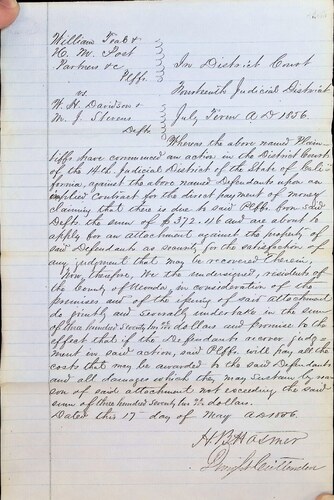 William Toal &
H. M. Post
Partners &c
Plffs. In District Court
vs. Fourteenth Judicial District
W. H. Davidson &
M. J. Stevens July Term A D 1856.
Defts
Whereas the above named Plain
tiffs have commenced an action in the District Court
of the 14th Judicial District of the State of Cali
fornia, against the above named Defendants upon an
implied Contract for the direct payment of money
Claiming that there is due to the Plffs from said
Defts the sum of $372.46 and are about to
apply for an attachment against the property of
said Defendants as security for the satisfaction of
any judgment that may be recovered therein,
Now, therefore, We the undersigned, residents of
the County of Nevada, in consideration of the
premises and of the issuing of said attachment
do jointly and severally undertake in the sum
of three hundred Seventy two dollars and promise to the
effect that if the Defendants recover judg-
ment in said action, said Plffs will pay all the
costs that may be awarded to the said Defendants
and all damages which they may sustain by rea
son of said attachment not exceeding the said
sum of three hundred Seventy two dollars.
Dated this 17 day of May A D 1856.
H B Hosmer
Dwight Crittenden